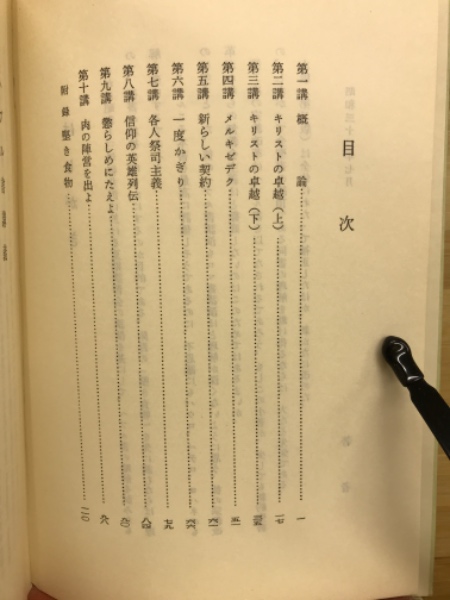 目次
第一講 概論……一
第二講 キリストの卓越（上）……一七
第三講 キリストの卓越（下）……
第四講 メルキゼデク……
第五講 新らしい契約……
第六講 一度かぎり……
第七講 各人祭司主義……七九
第八講 信仰の英雄列伝……八四
第九講 懲らしめにたえよ……
第十講 肉の陣営を出よ……
附録 堅き食物……一一〇